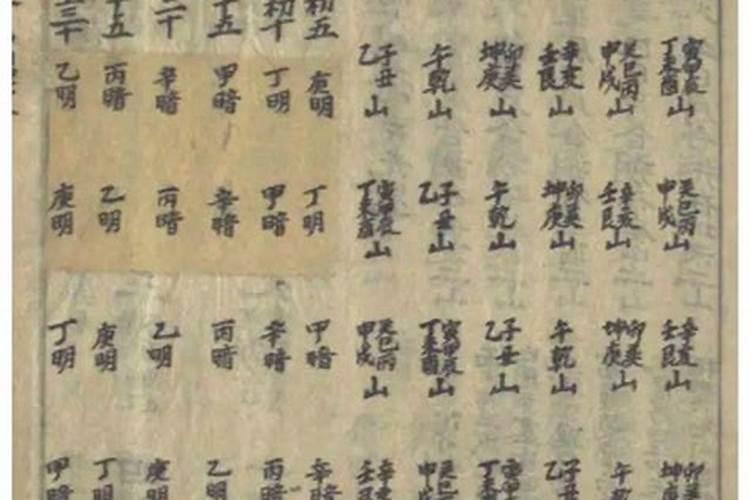 寅甲辰丁未酉山 巽巳丙申戌山 辛亥壬艮山 卯癸坤
巽巳丙申戌山 辛亥壬艮山 卯癸坤庚山 午
辛亥壬艮山 卯癸坤庚山 午乾山 子乙
卯癸坤庚山 午乾山 子丑乙山 寅甲丁未
午乾山 子丑乙山 寅甲辰丁未酉山 巽巳申戌
子丑乙山 寅甲辰丁未酉山 巽巳丙申戌山 辛亥壬艮
初五 庚明 丁明 甲暗 辛暗
初十 丁明 甲暗 辛暗 丙暗
十五 甲暗 辛暗 丙暗 乙明
二十 辛暗 丙暗 乙明 庚明
五 丙暗 乙明 庚明 丁明
三十 乙明 庚明 丁明 甲暗